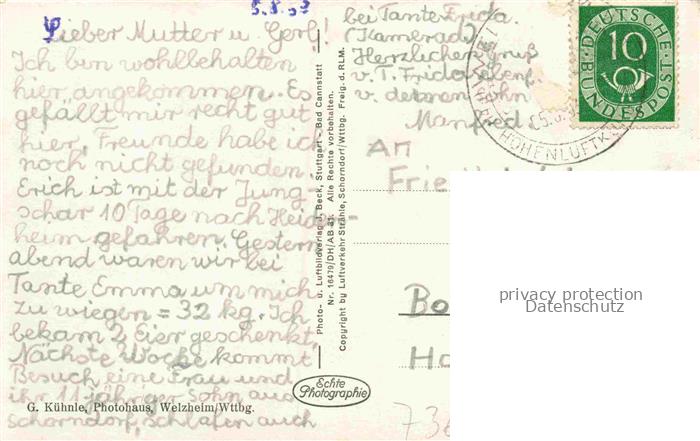 5.8.53
Lieber Mutter u. Gerh!
Ich bin wohlbehalten
hier angekommen. Es
gefällt mir recht gut
hier. Freunde habe ich
noch nicht gefunden.
Erich ist mit der Jung-
schar 10 Tage nach Heiden-
heim gefahren. Gestern
abend waren wir bei
Tante Emma um mich
zu wiegen = 32 kg. Ich
bekam 2 Eier geschenkt.
Nächste Woche kommt
Besuch eine Frau und
ihr 11 jähriger Sohn aus
Schorndorf, schlafen auch
bei Tante Frida.
(Kamerad)
Herzlichen Gruß
v. T. Frida ebenf.
v. deinem Sohn
Manfred
An
Bo
Ha
G. Kühnle, Photohaus, Welzheim/Wttbg.
Photo- u. Luftbildverlag J. Beck, Stuttgart - Bad Cannstatt
Nr. 16479/DH/AB 31. Alle Rechte vorbehalten.
Copyright by Luftverkehr Strähle, Schorndorf/Wttbg. Freig. d. RLM.
Echte
Photographie
DEUTSCHE
BUNDESPOST
10
HÖHENLUFTK
privacy protection
Datenschutz